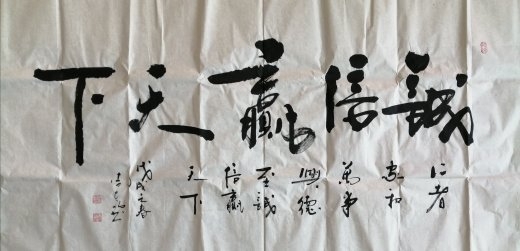 誠信贏天下
仁者
家和
萬事
興德
至誠
信贏
天下
戊戌之春